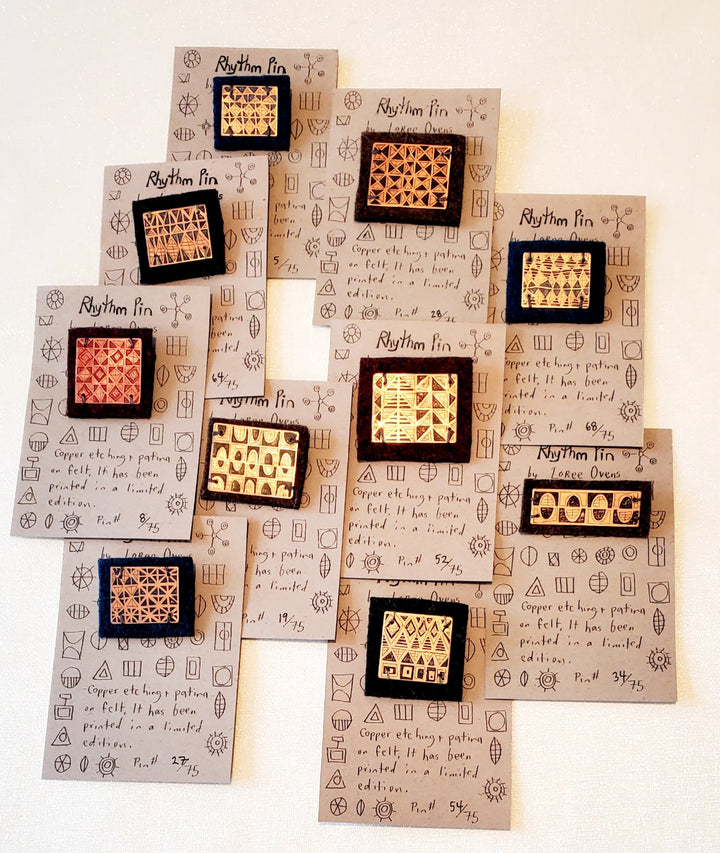 Rhythm Pin
5/75
Rhythm Pin
by Loree Ovens
Copper etching + patina
on felt, It has been
printed in a limited
edition.
Pin# 28/75
Rhythm Pin
patina
been
limited
64/75
Rhythm Pin
by Loree Ovens
Copper etching + patina
on felt, It has been
printed in a limited
edition.
68/75
Rhythm Pin
Copper etching + patina
on felt, It has been
printed in a limited
edition.
Pin# 8/75
Rhythm Pin
Loree Ovens
etching + patina
It has been
in a limited
Pin# 19/75
Rhythm Pin
Copper etching + patina
on felt, It has been
printed in a limited
edition.
Pin# 52/75
Rhythm Pin
by Loree Ovens
Copper etching + patina
on felt, It has been
printed in a limited
edition.
Pin# 34/75
Copper etching + patina
on felt, It has been
printed in a limited
edition.
Pin# 27/75
Rhythm Pin
Copper etching + patina
on felt, It has been
printed in a limited
edition.
Pin# 54/75